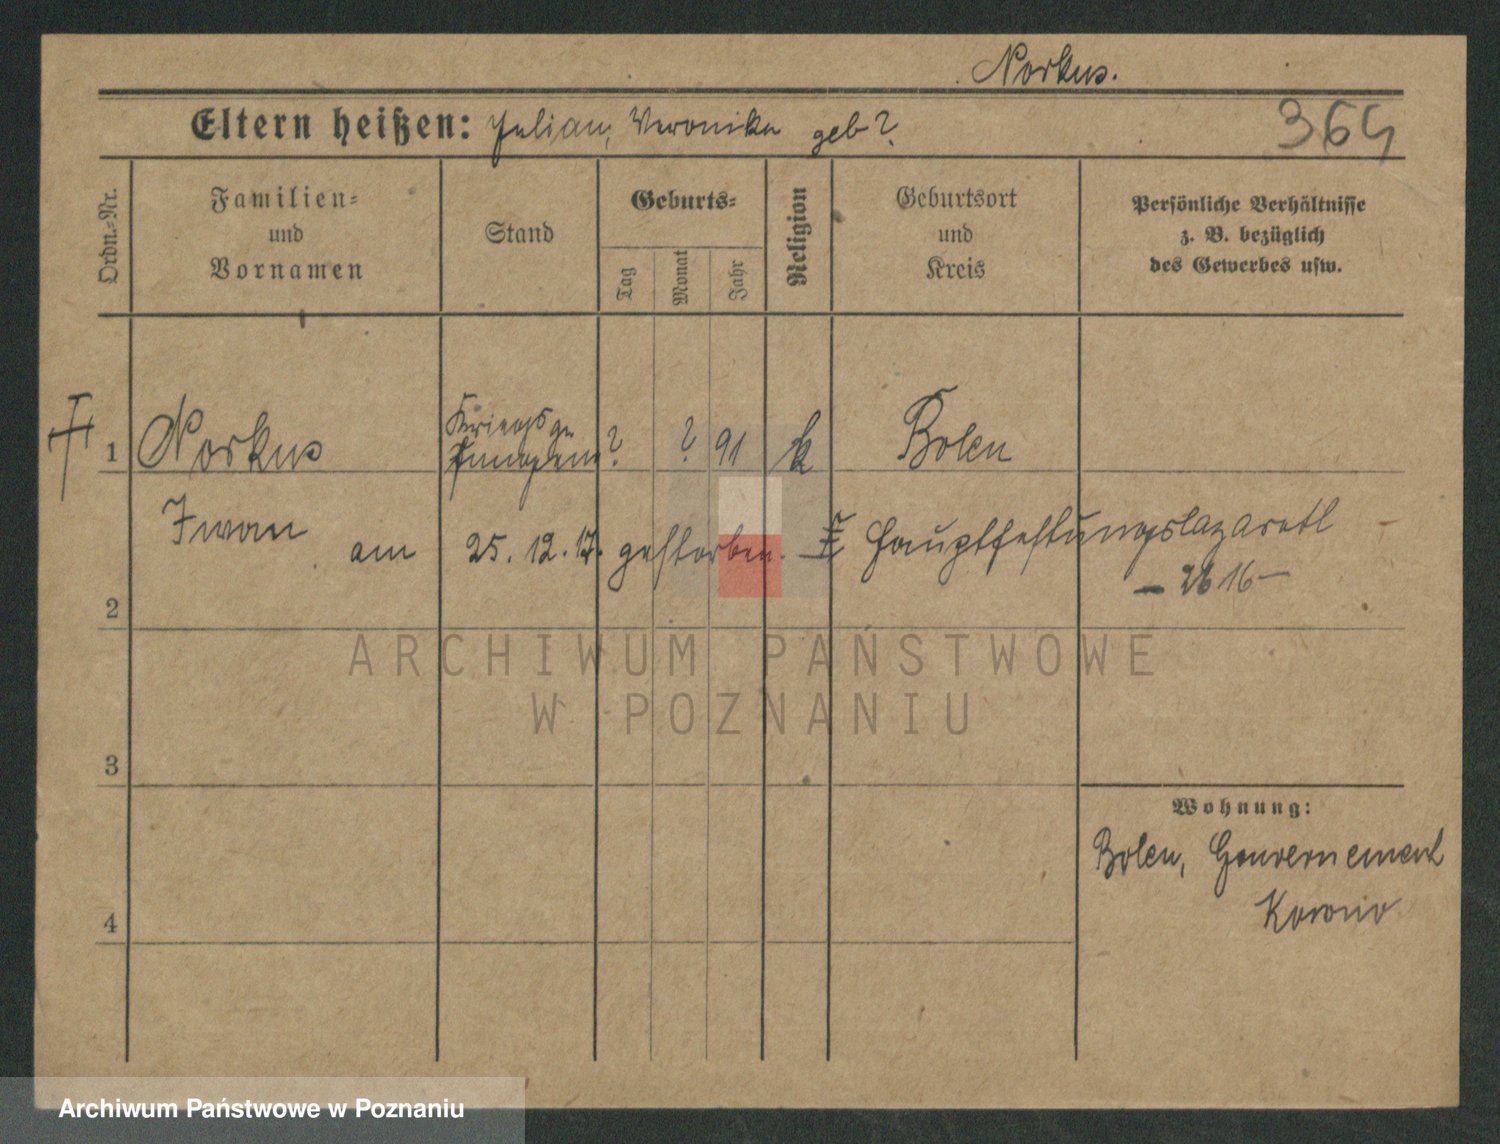 Norkus.
Eltern heißen: Julian, Veronika geb?
364
Ordn.-Nr.
Familien-
und
Vornamen
Stand
Geburts-
Tag
Monat
Jahr
Religion
Geburtsort
und
Kreis
Persönliche Verhältnisse
z. B. bezüglich
des Gewerbes usw.
1 Norkus Kriegsge
fangen ? ? 91 k Bolen
Iwan
am 25. 12. 17. gestorben. Hauptfestungslazarett
2 16 –
ARCHIWUM PAŃSTWOWE
W POZNANIU
3
Wohnung:
Bolen, Gouvernement
Kowno
4
Archiwum Państwowe w Poznaniu